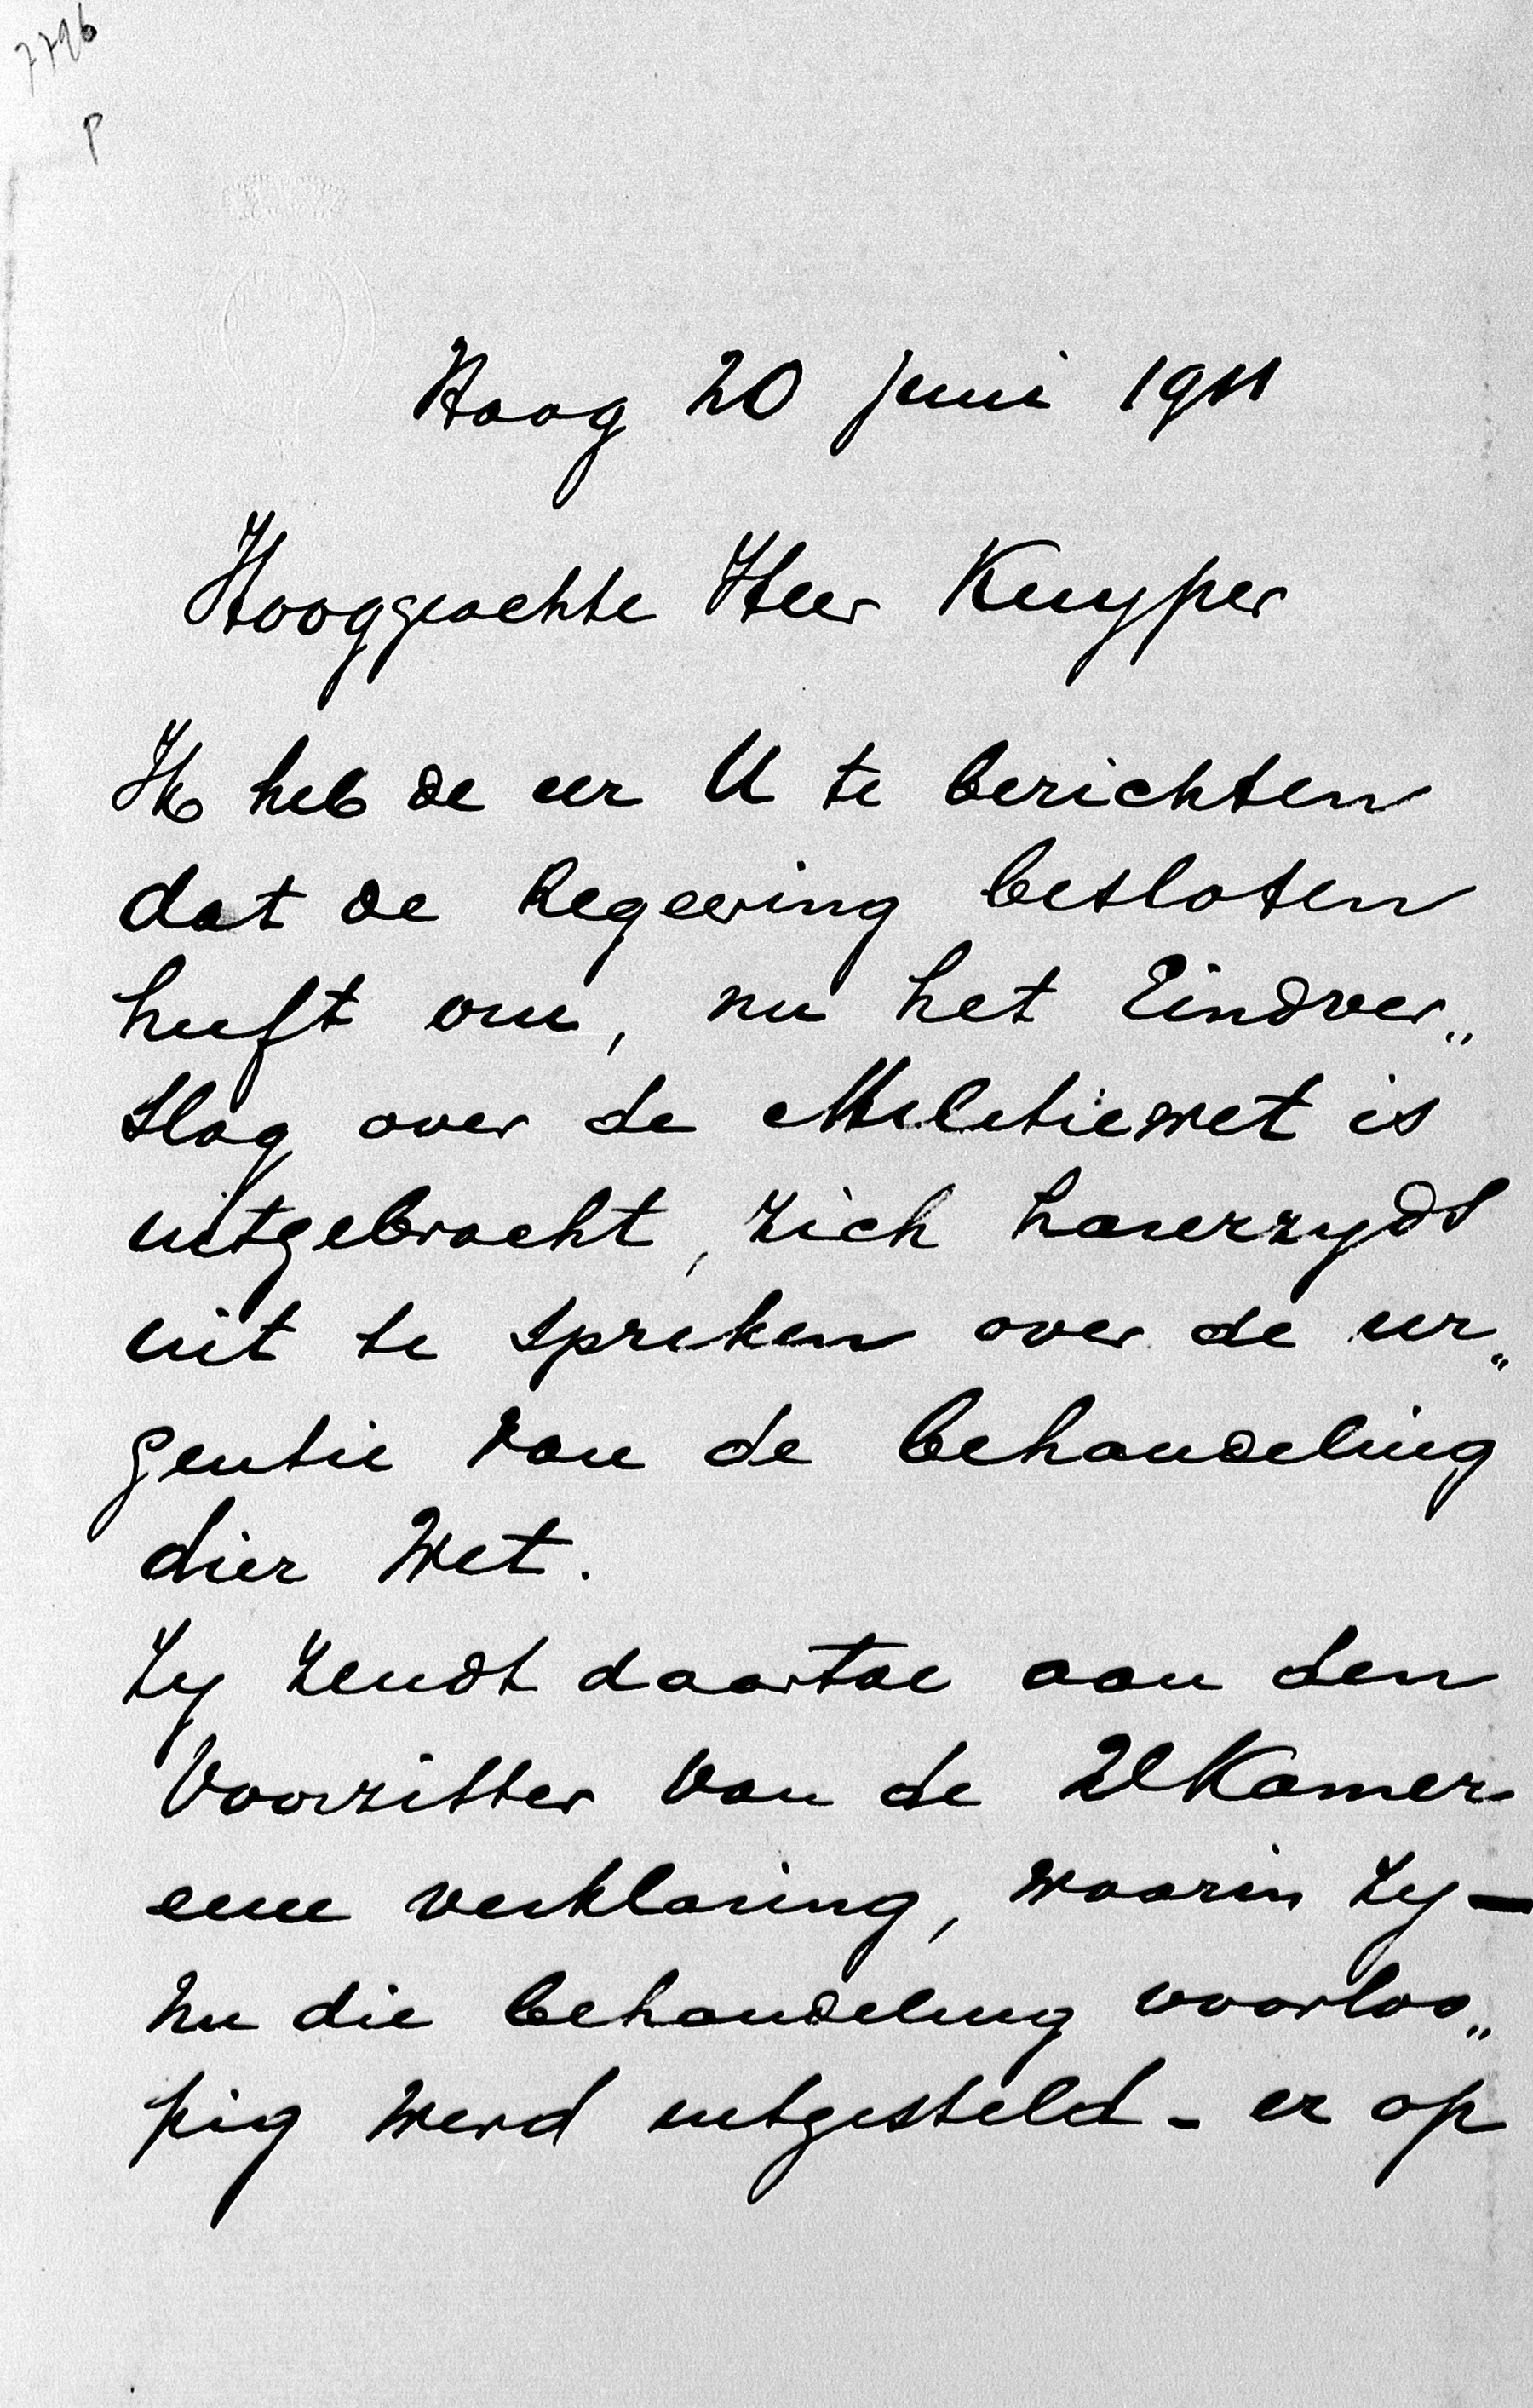 7796
P
Haag 20 juni 1911
Hooggeachte Heer Kuyper
Ik heb de eer U te berichten
dat de Regeering besloten
heeft om, nu het Eindver„
slag over de Militiewet is
uitgebracht, zich harerzyds
uit te spreken over de ur„
gentie van de behandeling
dier Wet.
Zy zendt daartoe aan den
Voorzitter van de 2e Kamer
eene verklaring, waarin zy —
nu die behandeling voorloo„
pig werd uitgesteld - er op